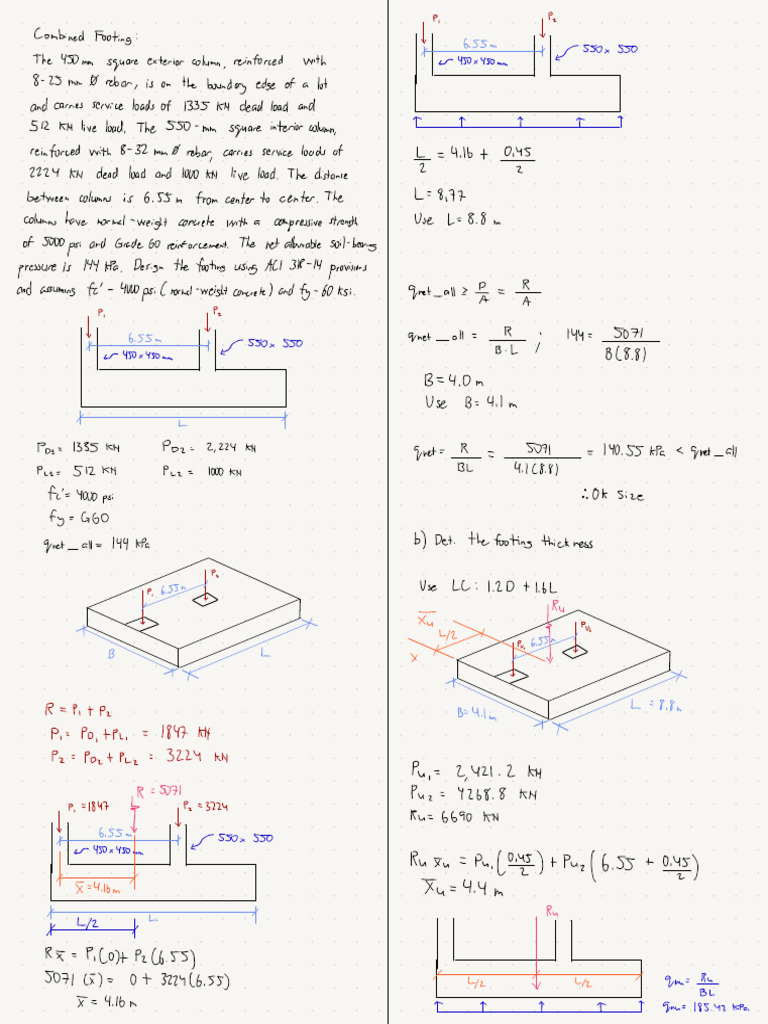 Combined Footing:
The 450 mm square exterior column, reinforced with
8-25 mm Ø rebar, is on the boundary edge of a lot
and carries service loads of 1335 KN dead load and
512 KN live load. The 550-mm square interior column,
reinforced with 8-32 mm Ø rebar, carries service loads of
2224 KN dead load and 1000 KN live load. The distance
between columns is 6.55 m from center to center. The
columns have normal-weight concrete with a compressive strength
of 5000 psi and Grade 60 reinforcement. The net allowable soil-bearing
pressure is 144 kPa. Design the footing using ACI 318-14 provisions
and assuming fc' - 4000 psi (normal-weight concrete) and fy - 60 ksi.
P1 P2
6.55 m
450 x 450 mm
550 x 550
L
PD1 = 1335 KN PD2 = 2,224 KN
PL1 = 512 KN PL2 = 1000 KN
fc' = 4000 psi
fy = G60
qnet_all = 144 kPa
P1 6.55 m P2
B L
R = P1 + P2
P1 = PD1 + PL1 = 1847 KN
P2 = PD2 + PL2 = 3224 KN
R = 5071
P1 = 1847 P2 = 3224
6.55 m
450 x 450 mm
550 x 550
x̄ = 4.16 m
L
L/2
R x̄ = P1(0) + P2(6.55)
5071 (x̄) = 0 + 3224(6.55)
x̄ = 4.16 m
P1 P2
6.55 m
450 x 450 mm
550 x 550
L/2 = 4.16 + 0.45/2
L = 8.77
Use L = 8.8 m
qnet_all ≥ P/A = R/A
qnet_all = R/B·L ; 144 = 5071/B(8.8)
B = 4.0 m
Use B = 4.1 m
qnet = R/BL = 5071/4.1(8.8) = 140.55 kPa < qnet_all
∴ Ok Size
b) Det. the footing thickness
Use LC: 1.2D + 1.6L
x̄u L/2 Ru
x Pu1 6.55 m Pu2
B = 4.1 m L = 8.8 m
Pu1 = 2,421.2 KN
Pu2 = 4268.8 KN
Ru = 6690 KN
Ru x̄u = Pu1(0.45/2) + Pu2(6.55 + 0.45/2)
x̄u = 4.4 m
Ru
L/2 L/2
qnu = Ru/BL
qnu = 185.42 kPa